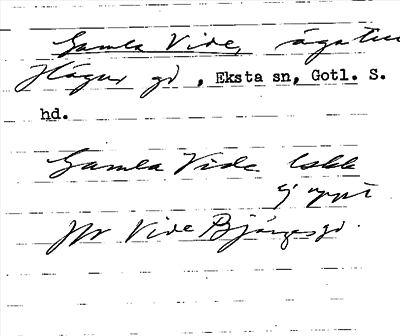 Gamla Vide, ägatill
Hägur gd, Eksta sn, Gotl. S.
hd.
Gamla Vide
ej uppt
Jfr Vide Bjärgesgd.